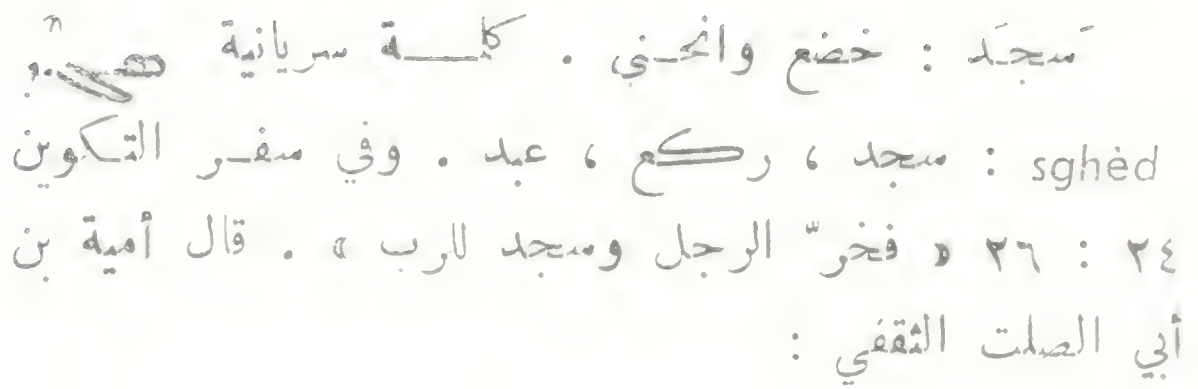 سَجَد : خضع وانحنى . كلمة سريانية ܣܓܕ
sghèd : سجد ، ركع ، عبد . وفي سفر التكوين
٢٤ : ٢٦ « فخرّ الرجل وسجد للرب » . قال أمية بن
أبي الصلت الثقفي :